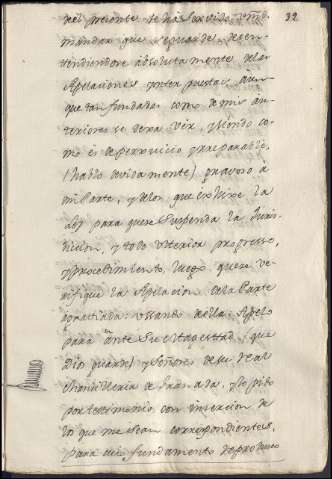 del presente se ha servido Vmd 32
mandar que se guarde, desen-
tendiendose absolutamente de las
Apelaciones interpuestas, aun-
que tan fundadas como de mis an-
teriores se dexa ver, y siendo co-
mo es de perjuicio irreparable,
(hablo devidamente) gravoso à
mi Parte, y de los que exhive la
Ley para que se suspenda la Juris-
dicion, y todo ulterior progresso,
y procedimiento, luego que se ve-
rifique la Apelacion de la Parte
agraviada: usando de la Apelo
para ante Su Magestad, (que
Dios guarde) y Señores de su Real
Chancilleria de Granada, y lo pido
por testimonio con insercion de
lo que me sean correspondientes,
para cuio fundamento deproduco